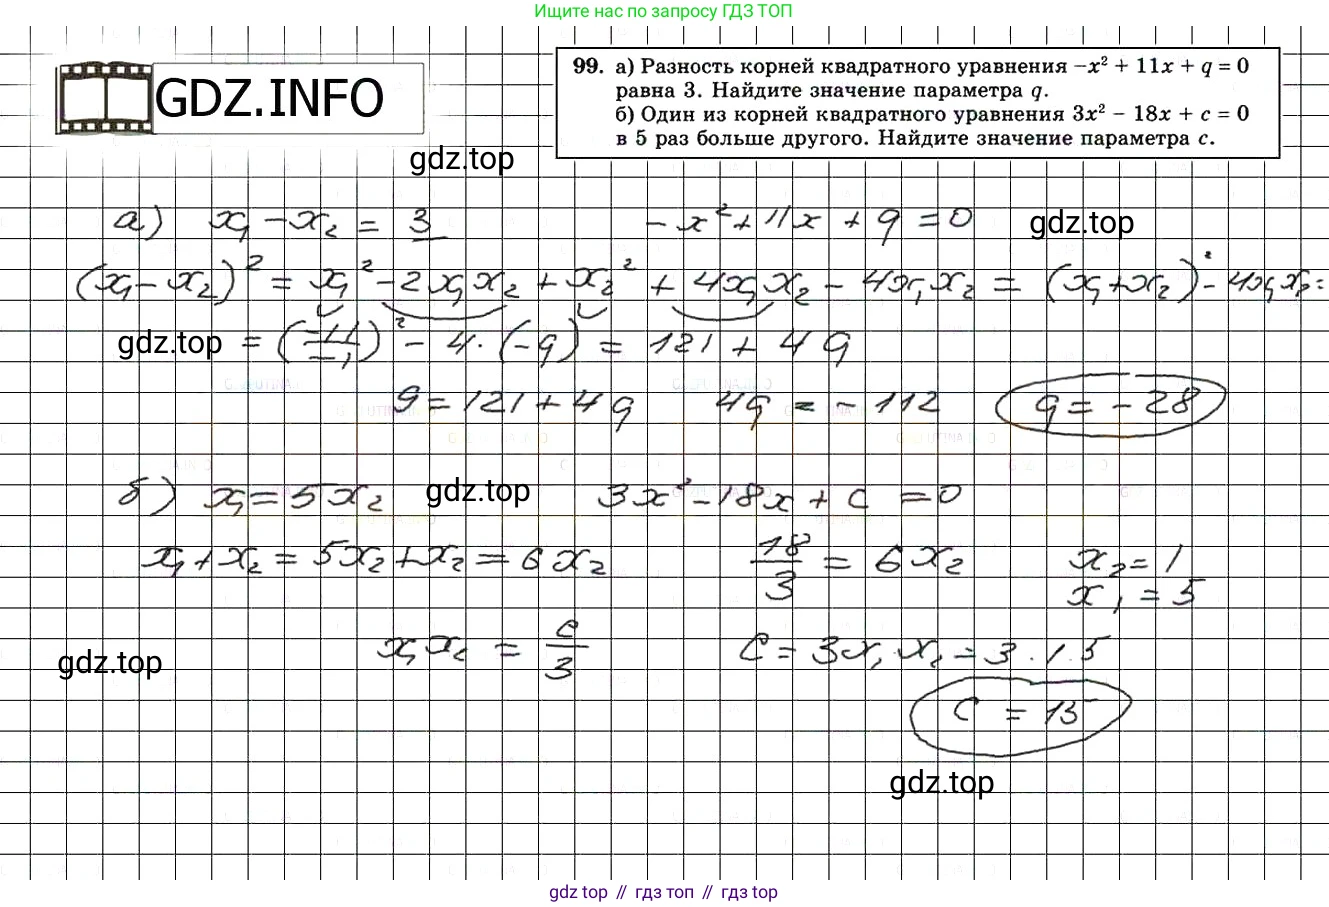 Ищите нас по запросу ГДЗ ТОП
GDZ.INFO
99. а) Разность корней квадратного уравнения −x² + 11x + q = 0
равна 3. Найдите значение параметра q.
б) Один из корней квадратного уравнения 3x² − 18x + c = 0
в 5 раз больше другого. Найдите значение параметра c.
gdz.top
а) x₁ − x₂ = 3   −x² + 11x + q = 0   gdz.top
(x₁ − x₂)² = x₁² − 2x₁x₂ + x₂² + 4x₁x₂ − 4x₁x₂ = (x₁+x₂)² − 4x₁x₂ =
gdz.top = (−11/−1)² − 4·(−q) = 121 + 4q
9 = 121 + 4q   4q = −112   q = −28
б) x₁ = 5x₂   gdz.top   3x² − 18x + c = 0
x₁ + x₂ = 5x₂ + x₂ = 6x₂   18/3 = 6x₂   x₂ = 1
x₁ = 5
gdz.top   x₁x₂ = c/3   C = 3x₁·x₂ = 3·1·5
C = 15
gdz.top
gdz top // гдз топ // гдз top